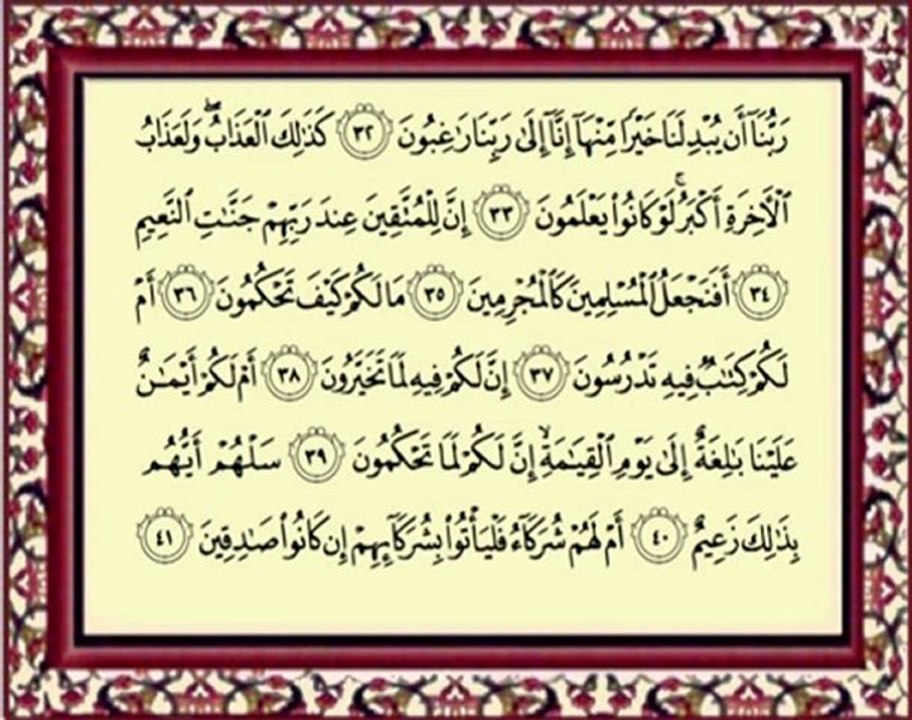 رَبُّنَآ أَن يُبْدِلَنَا خَيْرًا مِّنْهَآ إِنَّآ إِلَىٰ رَبِّنَا رَٰغِبُونَ ٣٢ كَذَٰلِكَ ٱلْعَذَابُ ۖ وَلَعَذَابُ
ٱلْأَخِرَةِ أَكْبَرُ ۚ لَوْ كَانُوا۟ يَعْلَمُونَ ٣٣ إِنَّ لِلْمُتَّقِينَ عِندَ رَبِّهِمْ جَنَّٰتِ ٱلنَّعِيمِ
٣٤ أَفَنَجْعَلُ ٱلْمُسْلِمِينَ كَٱلْمُجْرِمِينَ ٣٥ مَا لَكُمْ كَيْفَ تَحْكُمُونَ ٣٦ أَمْ
لَكُمْ كِتَٰبٌ فِيهِ تَدْرُسُونَ ٣٧ إِنَّ لَكُمْ فِيهِ لَمَا تَخَيَّرُونَ ٣٨ أَمْ لَكُمْ أَيْمَٰنٌ
عَلَيْنَا بَٰلِغَةٌ إِلَىٰ يَوْمِ ٱلْقِيَٰمَةِ ۙ إِنَّ لَكُمْ لَمَا تَحْكُمُونَ ٣٩ سَلْهُمْ أَيُّهُم
بِذَٰلِكَ زَعِيمٌ ٤٠ أَمْ لَهُمْ شُرَكَآءُ فَلْيَأْتُوا۟ بِشُرَكَآئِهِمْ إِن كَانُوا۟ صَٰدِقِينَ ٤١